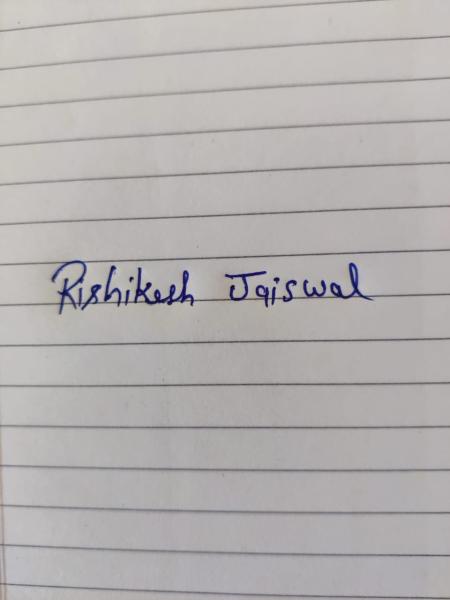 Rishikesh Jaiswal